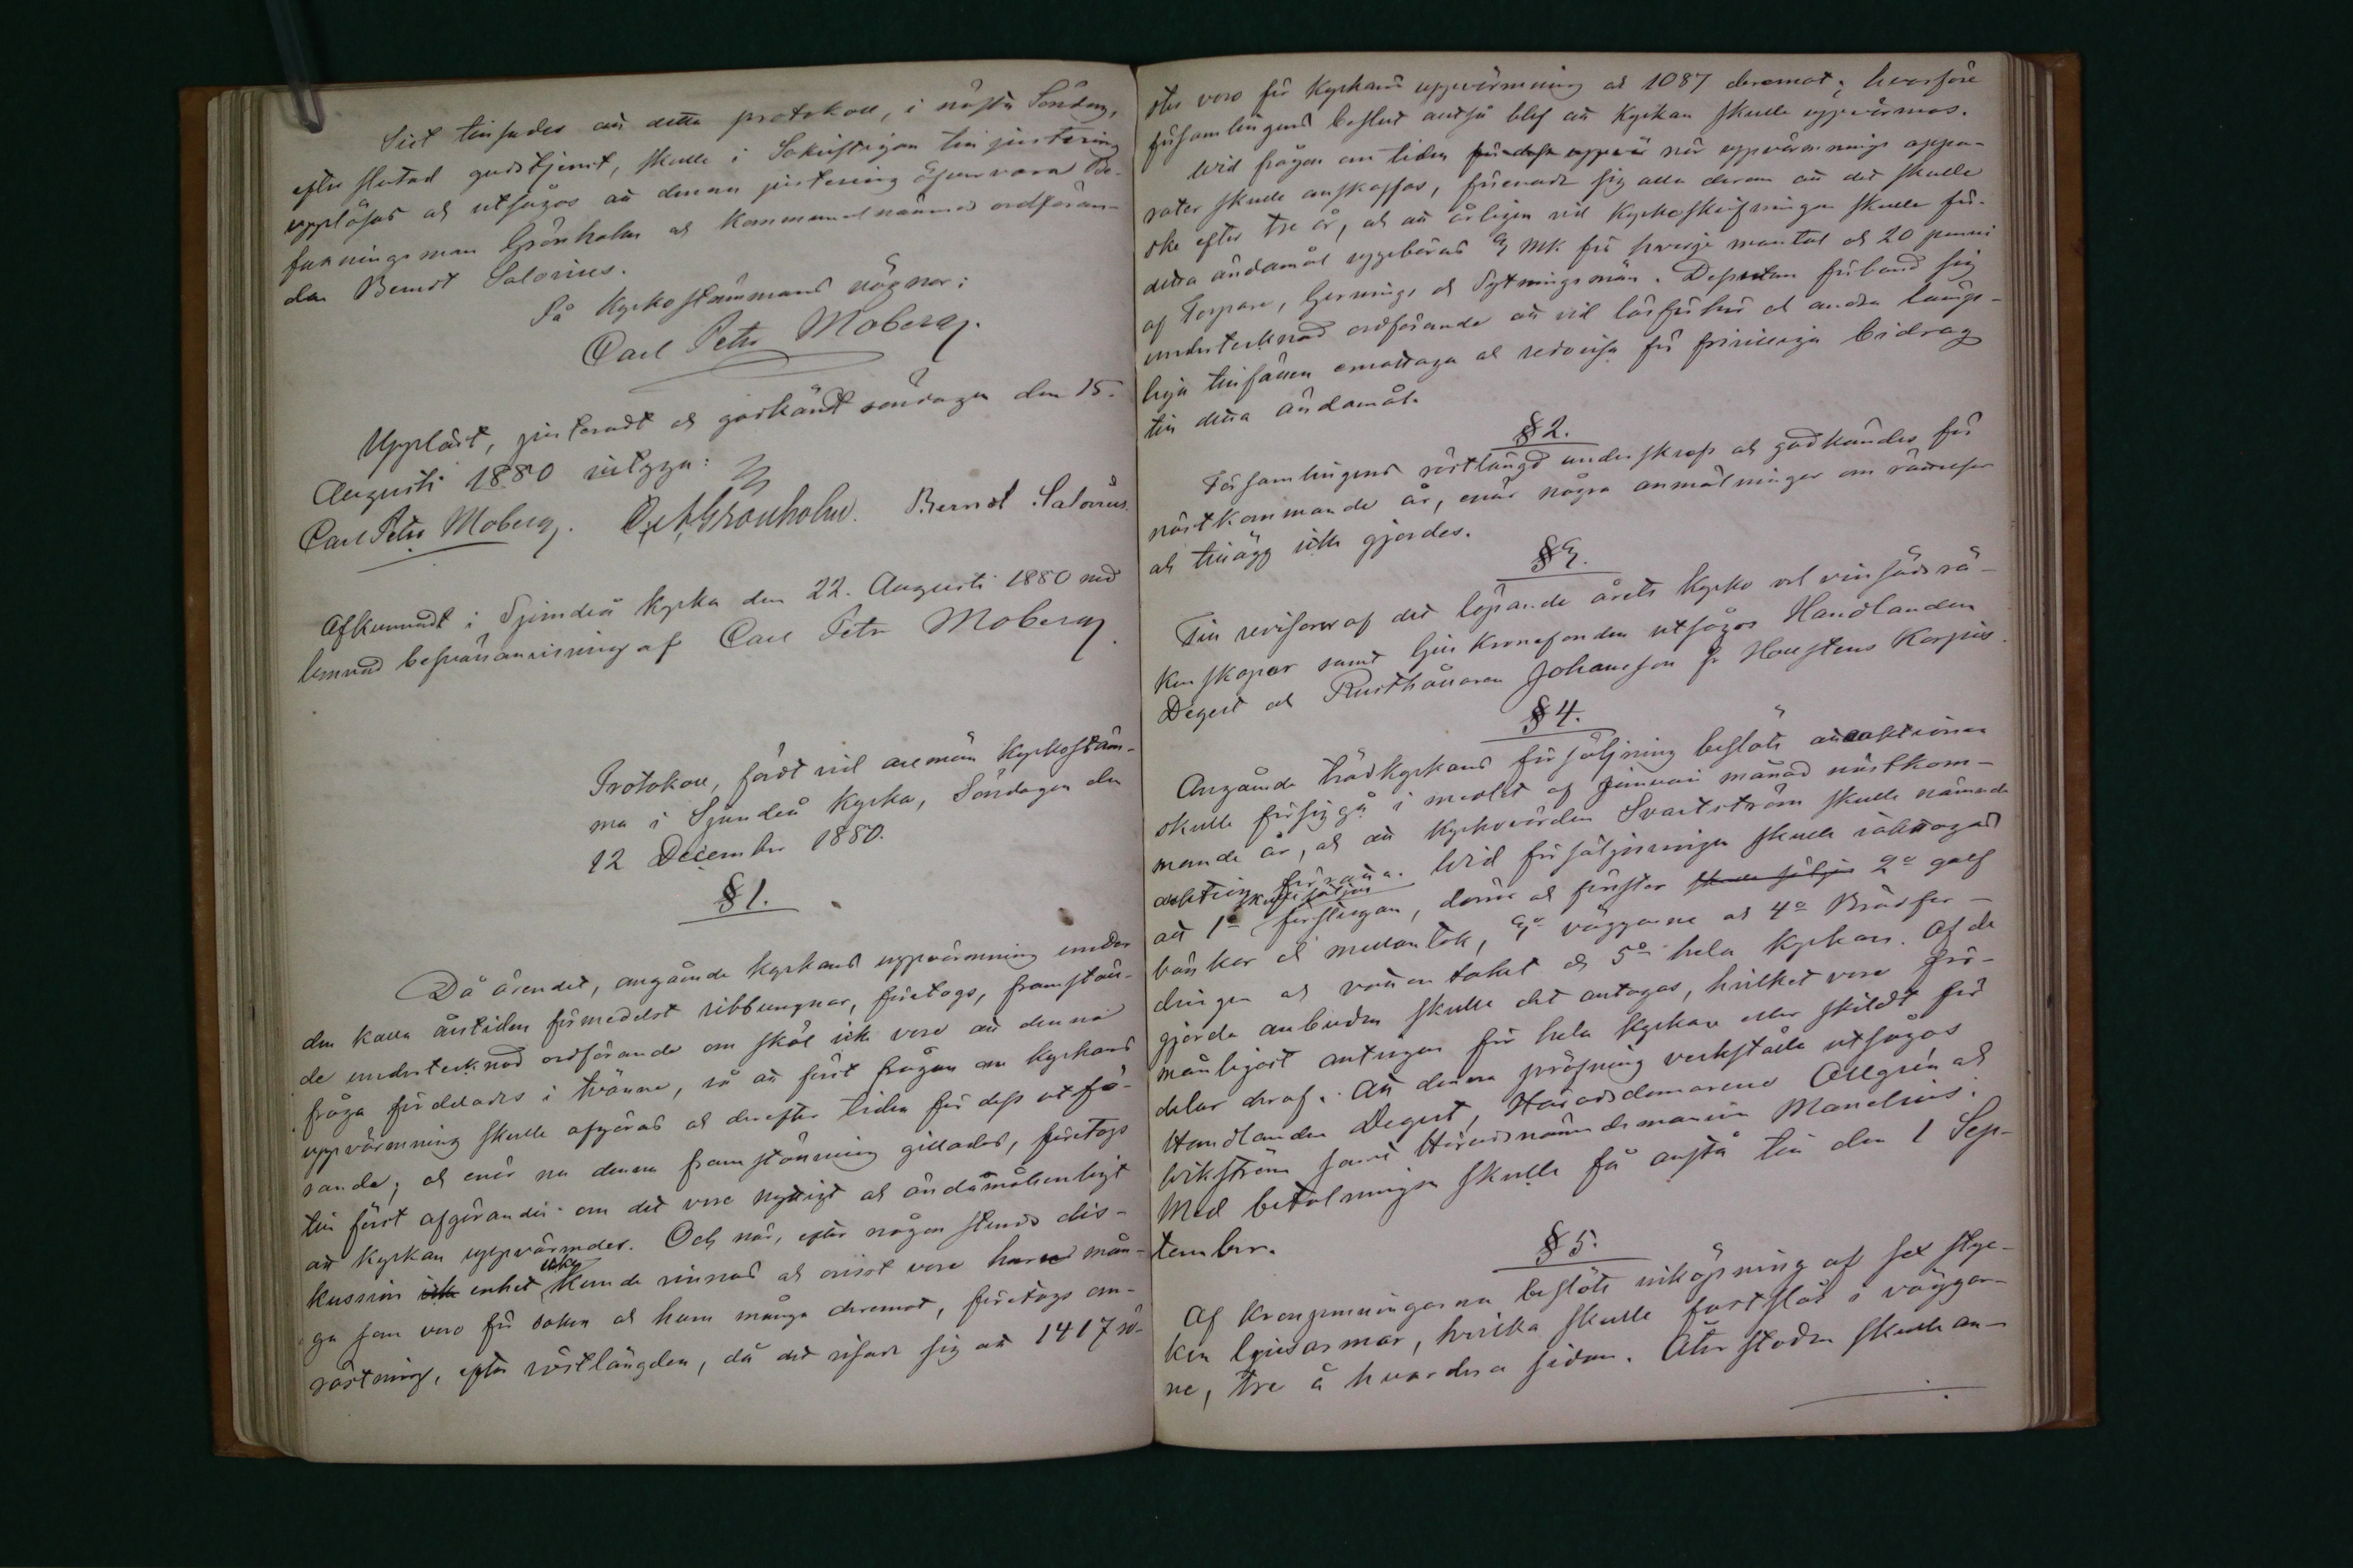 Sist tillsades att detta protokoll, i nästa Söndag,
efter slutad gudstjenst, skulle i Sakristigan till justering
uppläsas och utsågos att denna justering öfvervara Be-
fallningsman Grönholm och Kommunalnämnds ordföran-
den Berndt Salovius.
På Kyrkostämmans vägnar:
Carl Petr Moberg.
Uppläst, justeradt och godkändt söndagen den 15.
Augusti 1880 intyga:
Carl Petr Moberg. Grönholm. Berndt Salovius.
Afkunnadt i Sjundeå Kyrka den 22. Augusti 1880 med
lemnad besvärsanvisning af Carl Petr Moberg.
Protokoll, fördt vid allmän Kyrkostäm-
ma i Sjundeå Kyrka, Söndagen den
12 December 1880.
§ 1.
Då ärendet, angående kyrkans uppvärmning under
den kalla årstiden förmedelst ribbugnar, företogs, framstäl-
de undertecknad ordförande om skäl icke vore att denna
fråga fördelades i tvänne, så att först frågan om kyrkans
uppvärmning skulle afgöras och derefter tiden för dess utfö-
rande; och enär nu denna framställning gillades, företogs
till först afgörandet om det vore nyttigt och ändamålsenligt
att Kyrkan uppvärmdes. Och när, efter någon stunds dis-
kussion enhet icke kunde vinnas och ovisst vore huru mån-
ga som voro för saken och huru många deremot, företogs om-
röstning, efter röstlängden, då det visade sig att 1417 rö-
ster voro för Kyrkans uppvärmning och 1087 deremot; hvarföre
församlingens beslut alltså blef att Kyrkan skulle uppvärmas.
Wid frågan om tiden när uppvärmnings appa-
rater skulle anskaffas, förenade sig alla derom att det skulle
ske efter tre år, och att årligen vid Kyrkoskrifningen skulle för
detta ändamål uppbäras 3 mk för hvarje mantal och 20 penni
af Torpare, Gernings och Sytningsmän. Dessutan förband sig
undertecknad ordförande att vid läsförhör och andra lämp-
liga tillfällen emottaga och redovisa för frivilliga bidrag
till detta ändamål.
§ 2.
Församlingens röstlängd underskrefs och godkändes för
nästkommande år, enär några anmälningar om rättelser
och tillägg icke gjordes.
§ 3.
Till revisorer af det löpande årets kyrko och vinsädsrä-
kenskaper samt Ljuskronefonden utsågos Handlanden
Degert och Rusthållaren Johansson fr Karpus.
§ 4.
Angående trädkyrkans försäljning beslöts att auktionen
skulle försiggå i medlet af Januari månad nästkom-
mande år, och att kyrkovärden Svartström skulle nämnde
auktion förrätta. Wid försäljningen skulle iakttagas
att 1o skulle säljas förstugan, dörrar och fönster skulle säljas 2o golf
bänkar och mellantak, 3o väggarne och 4o Brädfor-
dringen och vattentaket och 5o hela Kyrkan. Af de
gjorda anbuden skulle det antagas, hvilket vore för-
månligast antingen för hela Kyrkan eller skildt för
delar deraf. Att denna pröfning verkställa utsågos
Handlanden Degert, Häradsdomarene Allgrén och
Wikström samt Häradsnämndemannen Mandelius.
Med betalningen skulle få anstå till den 1 Sep-
tember.
§ 5.
Af Kronpenningarna beslöts inköpning af sex styc-
ken ljusarmar, hvilka skulle fastslås i väggar-
ne, tre å hvardera sidan. Återstoden skulle an-